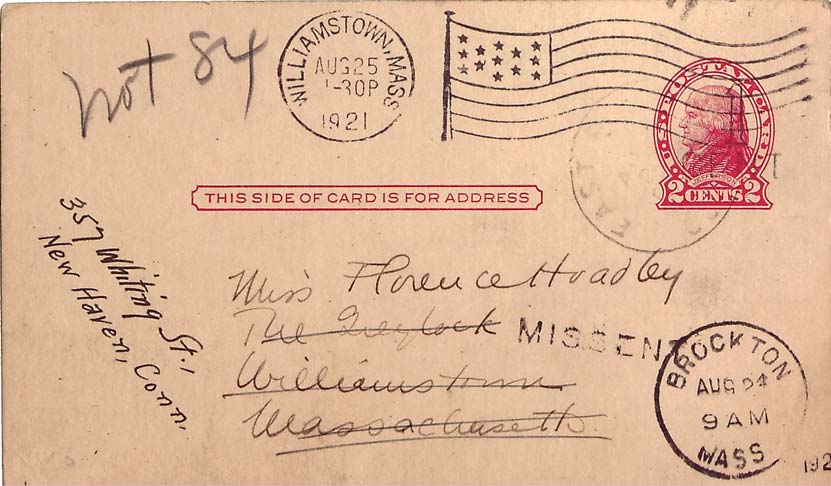 not 84
WILLIAMSTOWN, MASS
AUG 25
1-30P
1921
U.S. POSTAL CARD
JEFFERSON
2 CENTS 2
EAST
THIS SIDE OF CARD IS FOR ADDRESS
357 Whiting St.,
New Haven, Conn.
Miss Florence Hoadley
The Greylock
MISSENT
Williamstown
Massachusetts.
BROCKTON
AUG 24
9 AM
MASS
192